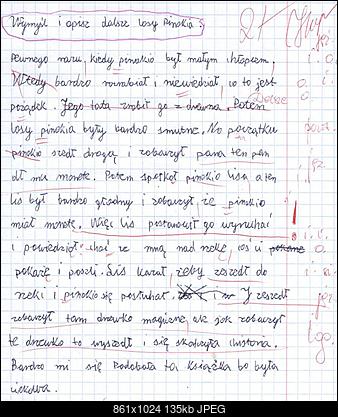 Wymyśl i opisz dalsze losy Pinokia.
Pewnego razu, kiedy pinokio był małym chłopcem,
Wtedy bardzo rozrabiał i niewiedział, co to jest
pożądek. Jego tata zrobił go z drewna. Potem
Dalsze
losy pinokia były bardzo smutne. Na początku
pinokio szedł drogą i zobaczył pana ten pan
dł mu monetę. Potem spotkał pinokio lisa a ten
lis był bardzo głodny i zobaczył, że pinokio
miał monetę. Więc lis postanowił go wyruchać
i powiedział chać ze mną nad rzekę, coś ci
pokażę i poszli. Lis kazał, żeby zeszedł do
rzeki i pinokio się posłuchał. I zeszedł
zobaczył tam drzewko magiczne, ale jak zobaczył
te drzewko to wyszedł i się skończyła historia.
Bardzo mi się podobała ta książka bo była
ciekawa.
2+
jęz.
i. o.
o.
i.
!
i. i.
o.
jęz.
log.